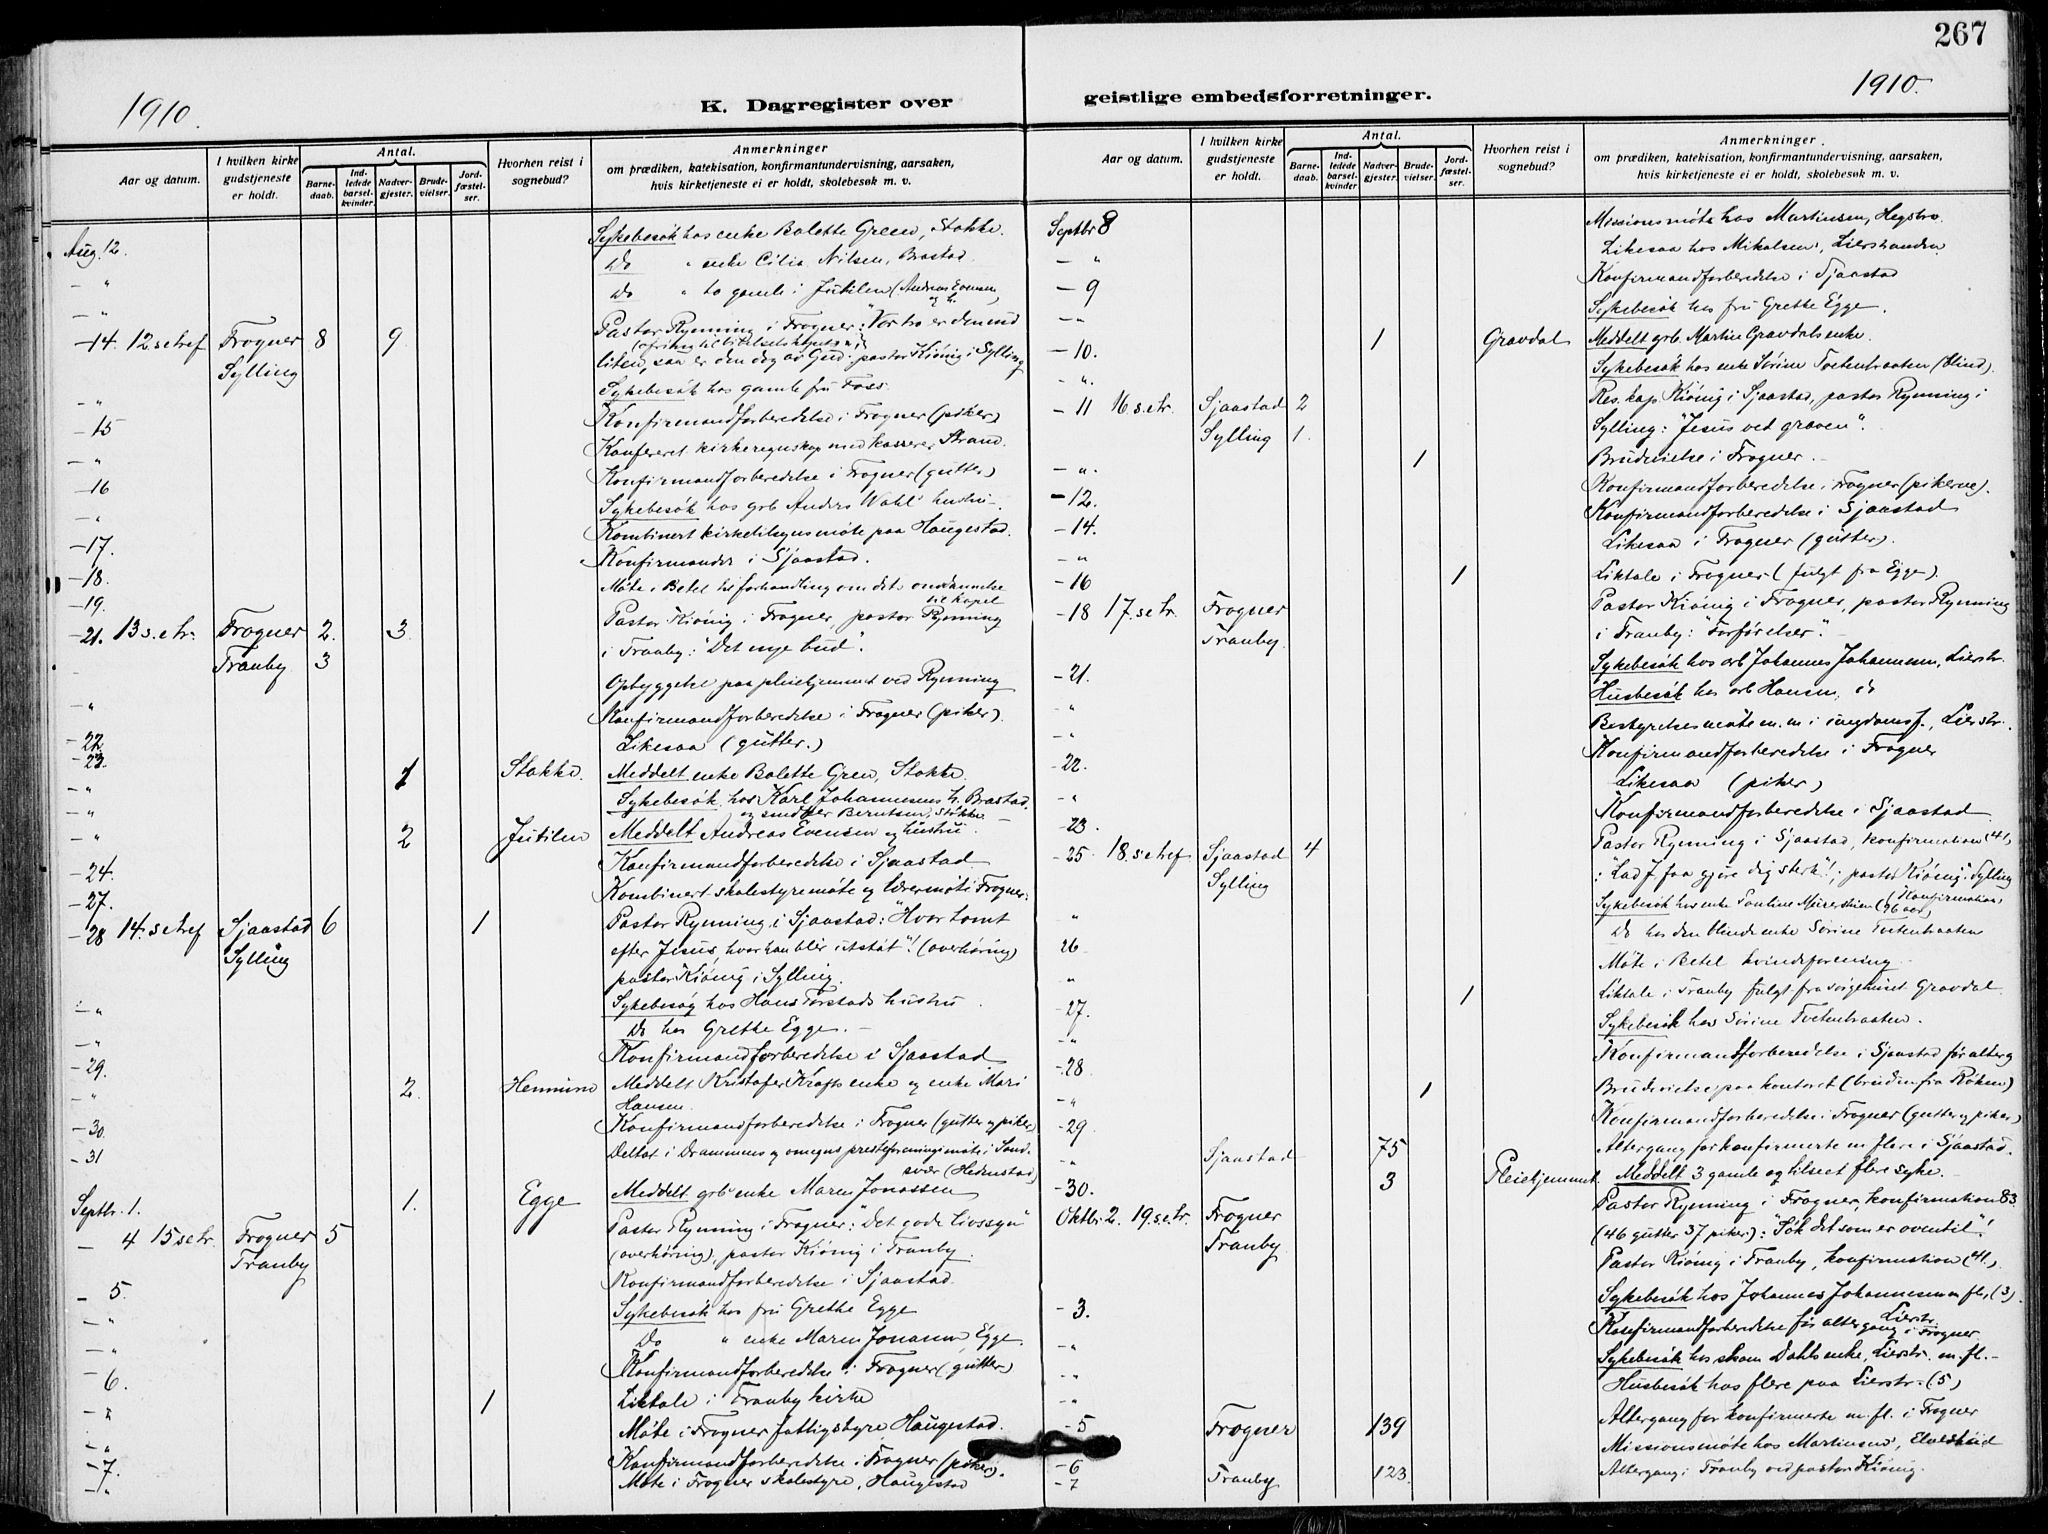 267
1910.
K. Dagregister over
geistlige embedsforretninger.
1910.
Aar og datum.
I hvilken kirke gudstjeneste er holdt.
Antal.
Barnedaab.
Indledede barselkvinder.
Nadvergjester.
Brudevielser.
Jordfæstelser.
Hvorhen reist i sognebud?
Anmerkninger
om prædiken, katekisation, konfirmantundervisning, aarsaken,
hvis kirketjeneste ei er holdt, skolebesøk m. v.
Aug. 12. Sykebesøk hos enke Bolette Green, Stokke.
- " Do " enke Cilia Nilsen, Brastad
- " Do " to gamle i Jutilen (Andreas Evensen og h.
- 14. 12. s e tref Frogner 8 9. Pastor Rynning i Frogner: "Vor tro er den end
Sylling liten, saa er den dog av Gud." pastor Kiönig i Sylling
- " Sykebesøk hos gamle fru Foss.
- 15 Konfirmandforberedelse i Frogner (piker)
- " Konfereret kirkeregnskap med kasserer Strand.
- 16 Konfirmandforberedelse i Frogner (gutter)
- " Sykebesøk hos grb Anders Wahl hustru.
- 17. Kombinert kirketilsynsmöte paa Haugestad.
- 18. Konfirmander i Sjaastad.
- 19. Möte i Betel til forhandling om dets omdannelse til kapel
- 21. 13 s. e tr. Frogner 2. 3. Pastor Kiönig i Frogner, pastor Rynning
Tranby 3 i Tranby: "Det nye bud".
- " Opbyggelse paa pleiehjemmet ved Rynning
- 22. Konfirmandforberedelse i Frogner (piker).
- 23. Likesaa (gutter.)
- " 1 Stokke. Meddelt enke Bolette Gren, Stokke.
- " Sykebesøk hos Karl Johannesens h. Brastad.
og smed Berntsen, Stokke
- " 2 Jutilen Meddelt Andreas Evensen og hustru.
- 24. Konfirmandforberedelse i Sjaastad
- 27. Kombinert skolestyremöte og lærermöte i Frogner.
- 28 14. s e tref Sjaastad 6 1 Pastor Rynning i Sjaastad: "Hvor tomt
Sylling efter Jesus, hvor han blir utstöt"! (overhöring)
pastor Kiönig i Sylling.
- " Sykebesøg hos Hans Torstads hustru.
- " Do hos Grethe Egge.
- 29. Konfirmandforberedelse i Sjaastad
- " 2. Hennum Meddelt Kristofer Krafts enke og enke Mari Hansen.
- 30. Konfirmandforberedelse i Frogner (gutter og piker)
- 31 Deltat i Drammens og omegns presteforeningsmöte i Sandsvær (Hedenstad)
Septbr. 1. 1. Egge Meddelt grb enke Maren Jonassen
- 4 15 s e tr. Frogner 5 Pastor Rynning i Frogner: "Det gode Livssyn"
Tranby (overhöring), pastor Kiönig i Tranby.
- 5. Konfirmandforberedelse i Sjaastad.
- " Sykebesøk hos fru Grethe Egge
- " Do " enke Maren Jonassen, Egge
- 6. Konfirmandforberedelse i Frogner (gutter)
- " 1 Liktale i Tranby kirke
- " Möte i Frogner fattigstyre, Haugestad.
- 7. Konfirmandforberedelse i Frogner (piker).
- " Möte i Frogner skolestyre, Haugestad
Aar og datum.
I hvilken kirke gudstjeneste er holdt.
Antal.
Barnedaab.
Indledede barselkvinder
Nadvergjester.
Brudevielser.
Jordfæstelser.
Hvorhen reist i sognebud?
Anmerkninger
om prædiken, katekisation, konfirmantundervisning, aarsaken,
hvis kirketjeneste ei er holdt, skolebesøk m. v.
Septbr 8 Missionsmöte hos Martinsen, Hegsbro.
- " Likesaa hos Mikalsen, Lierstranden.
- 9 Konfirmandforberedelse i Sjaastad
- " Sykebesøk hos fru Grethe Egge.
- 10. 1 Gravdal Meddelt grb. Martin Gravdals enke.
- " Sykebesøk hos enke Sörine Toetenbraaten (blind).
- 11 16 s. e tr. Sjaastad 2 Res. kap Kiönig i Sjaastad, pastor Rynning i
Sylling 1. Sylling: "Jesus ved graven".
- " 1 Brudevielse i Frogner.
- 12. Konfirmandforberedelse i Frogner (pikerne).
- 14. Konfirmandforberedelse i Sjaastad
- " Likesaa i Frogner (gutter).
- 16 1 Liktale i Frogner (fulgt fra Egge).
- 18 17. s e tr. Frogner Pastor Kiönig i Frogner, pastor Rynning
Tranby. i Tranby: "Forførelser".
- 21. Sykebesøk hos arb Johannes Johannesen, Lierstr.
- " Husbesøk hos arb Hansen, do
- " Bestyrelsesmöte m. m i ungdomsf., Lierstr.
- 22. Konfirmandforberedelse i Frogner
- " Likesaa (piker)
- 23. Konfirmandforberedelse i Sjaastad
- 25. 18. s e tref Sjaastad 4 Pastor Rynning i Sjaastad, konfirmation (41)
Sylling : "Lad J faa gjøre dig sterk"!; pastor Kiönig i Sylling (Konfirmation)
" Sykebesøk hos enke Pauline (96 aar)
26. Do hos den blinde enke Sörine Toetenbraaten
" Möte i Betel kvindeforening
- 27. 1 Liktale i Tranby fulgt fra sørgehuset Gravdal.
- " Sykebesök hos Sörine Toetenbraaten.
- 28 Konfirmandforberedelse i Sjaastad før alterg
- " 1 Brudevielse paa kontoret (bruden fra Røken)
- 29 Konfirmandforberedelse i Frogner (gutter og piker)
- " Sjaastad 75 Altergang for konfirmerte m flere i Sjaastad.
- 30. 3 Pleiehjemmet. Meddelt 3 gamle og tilseet flere syke.
Oktbr. 2. 19. s. e. tr. Frogner Pastor Rynning i Frogner, konfirmation 83
Tranby. (46 gutter 37 piker): "Søk det som er oventil"!
Pastor Kiönig i Tranby, konfirmation (41.).
- 3. Sykebesøk hos Johannes Johannesen m fl. (3) Lierstr.
- " Konfirmandforberedelse før altergang i Frogner
- " Sykebesøk hos skom Dahls enke, Lierstr. m. fl.
- " Husbesøk hos flere paa Lierstr. (5)
- 5 Frogner 139 Altergang for konfirmerte m. fl. i Frogner
- 6 Missionsmöte hos Martinsen,
- 7 Tranby 123 Altergang i Tranby ved pastor Kiönig.